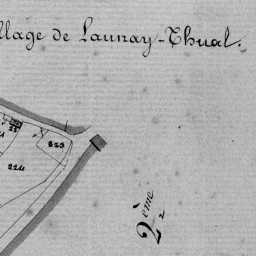 llage de Launay-Thual.
223
224
2ème
2